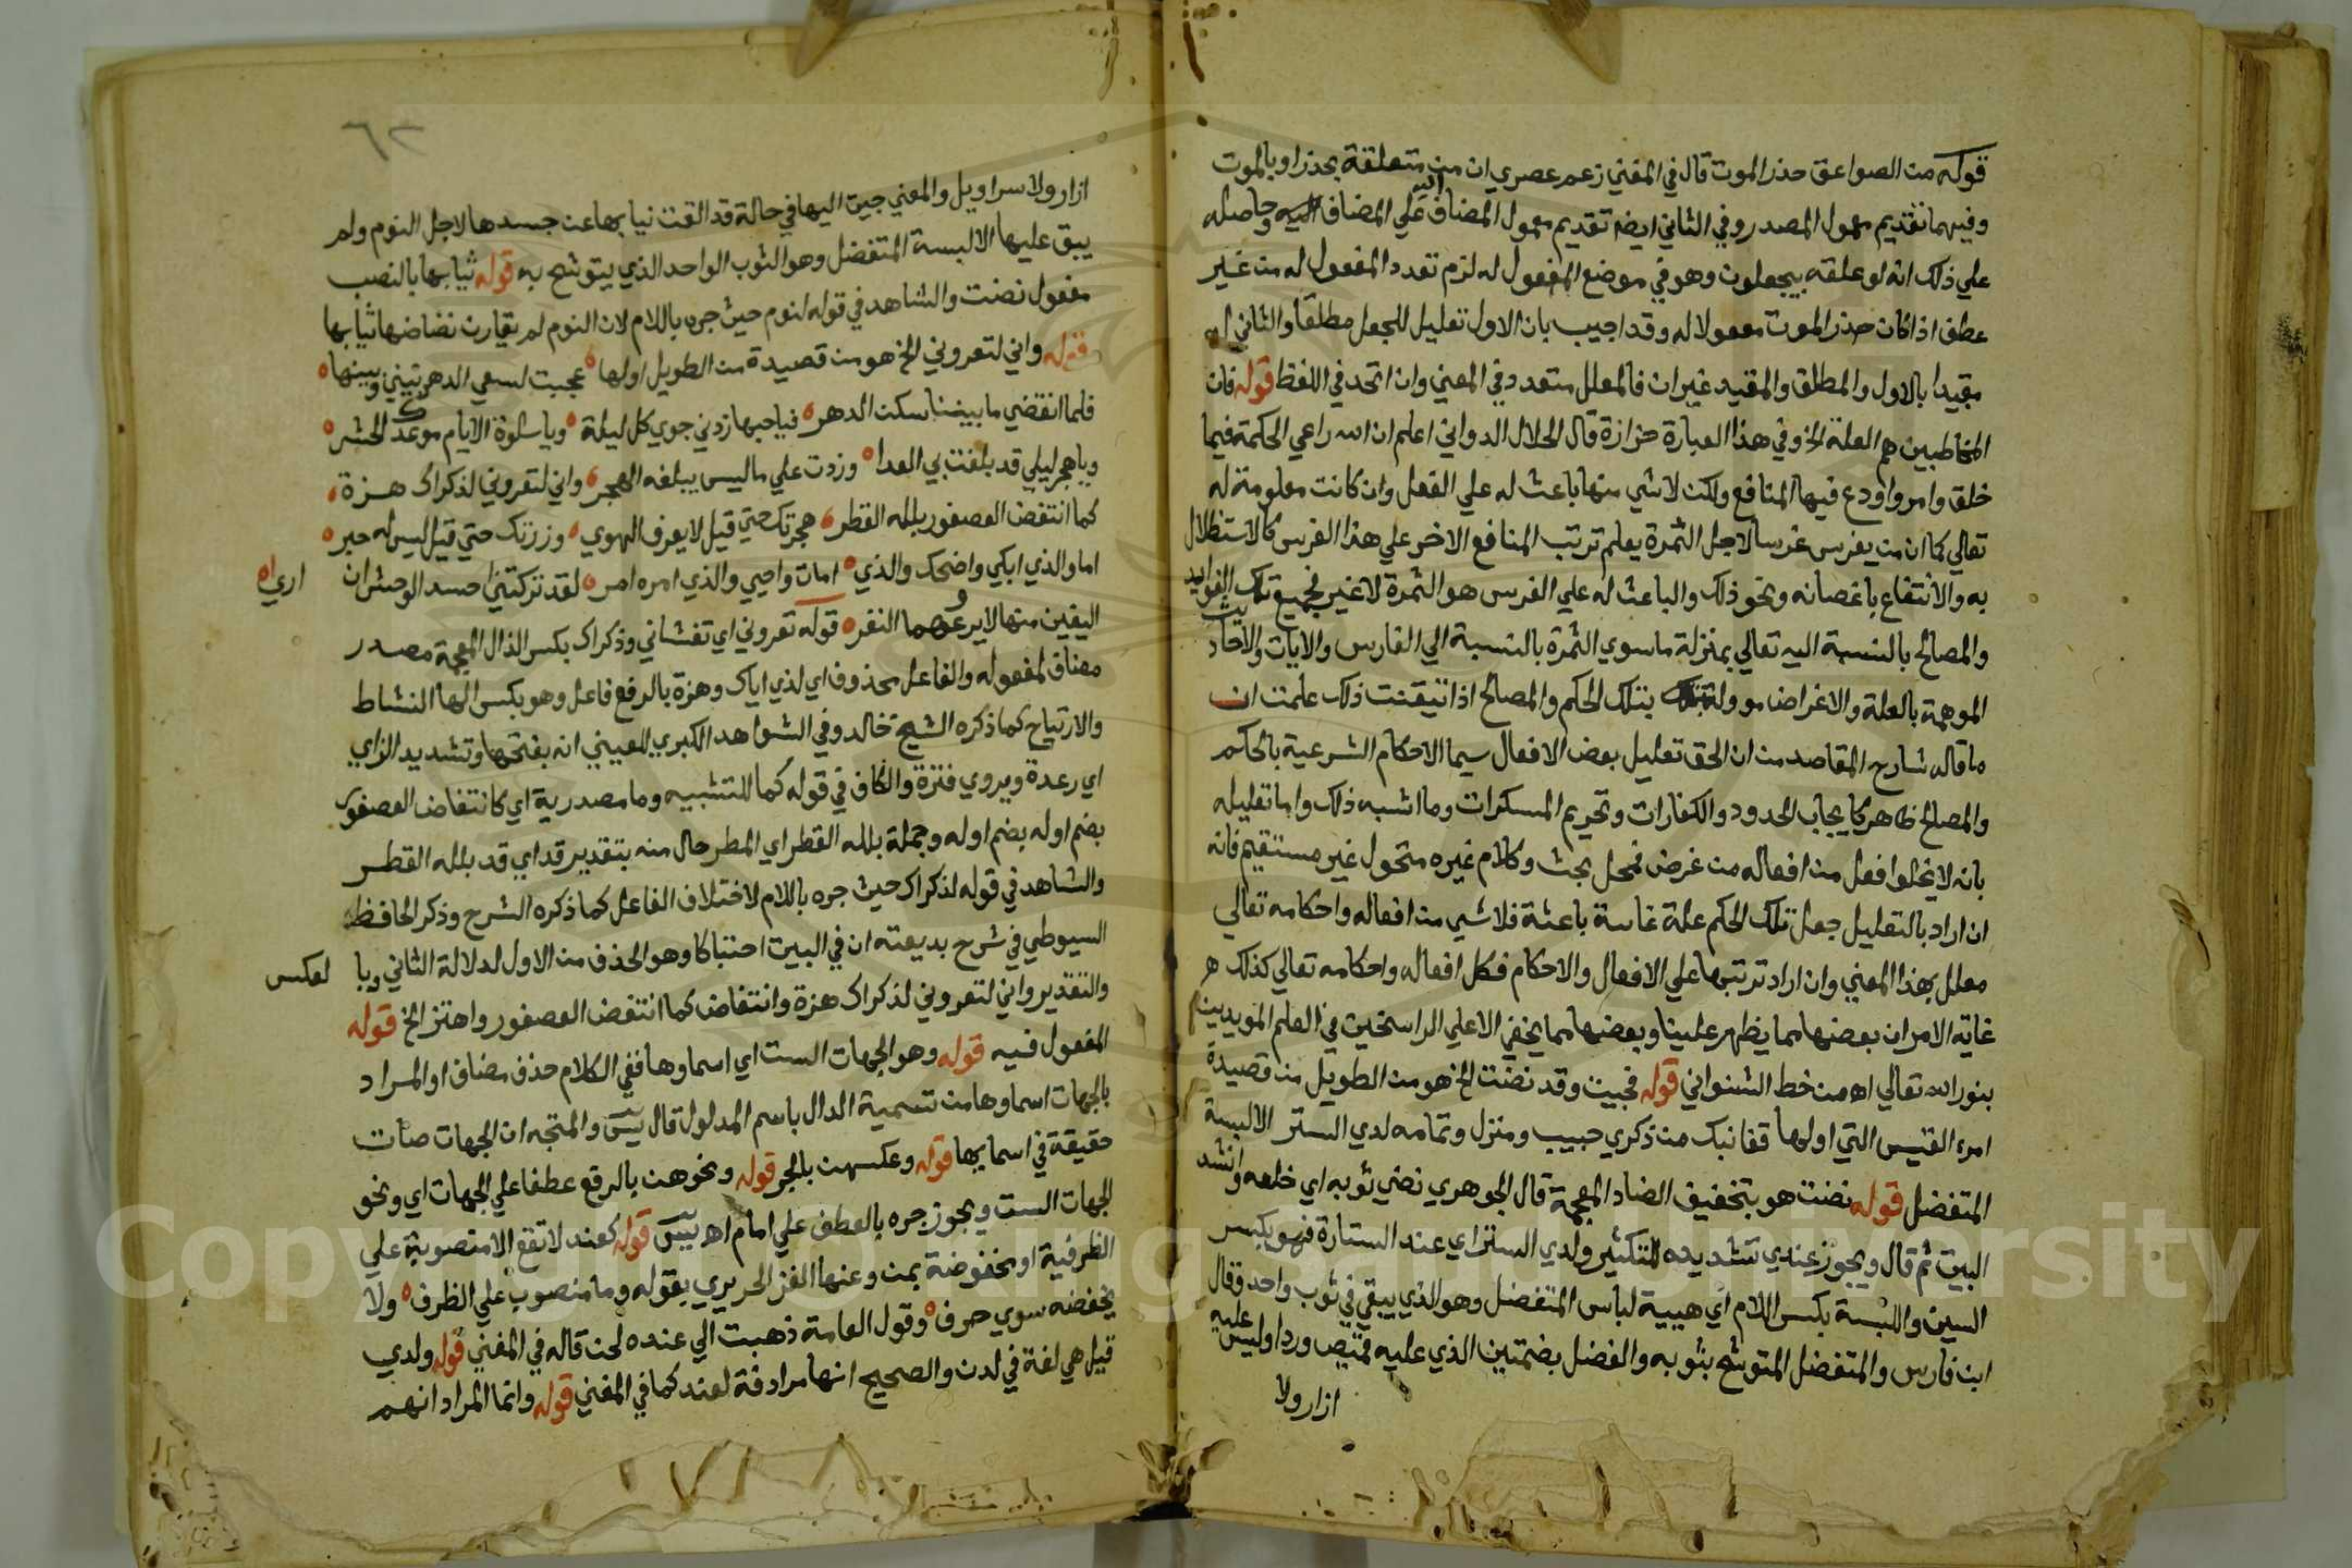 قوله من الصواعق حذر الموت قال في المغني زعم عصري ان من متعلقة بحذر او بالموت
وفيهما تقديم معمول المصدر وفي الثاني ايضا تقديم معمول المضاف اليه علي المضاف وحاصله
علي ذلك انه لو علقه بيجعلون وهو في موضع المفعول له لزم تعدد المفعول له من غير
عطف اذا كان حذر الموت مفعولا له وقد اجيب بان الاول تعليل للجعل مطلقا والثاني له
مقيدا بالاول والمطلق والمقيد غيران فالمعلل متعدد في المعني وان اتحد في اللفظ قوله فان
المخاطبين هم العلة الخ وفي هذا العبارة حزازة قال الجلال الدواني اعلم ان الله راعي الحكمة فيما
خلق وامر واودع فيها المنافع ولكن لا شي منها باعث له علي الفعل وان كانت معلومة له
تعالي كما ان من يغرس غرسا لاجل الثمرة يعلم ترتب المنافع الاخر علي هذا الغرس كالاستظلال
به والانتفاع باغصانه ونحو ذلك والباعث له علي الغرس هو الثمرة لا غير فجميع تلك الفوايد
والمصالح بالنسبة اليه تعالي بمنزلة ما سوي الثمرة بالنسبة الي الغارس والايات والاحاديث
الموهمة بالعلة والاغراض موولة بتلك الحكم والمصالح اذا تيقنت ذلك علمت ان
ما قاله شارح المقاصد من ان الحق تعليل بعض الافعال سيما الاحكام الشرعية بالحكم
والمصالح ظاهر كايجاب الحدود والكفارات وتحريم المسكرات وما اشبه ذلك واما تعليله
بانه لا يخلوا فعل من افعاله من غرض فمحل بحث وكلام غيره منحول غير مستقيم فانه
ان اراد بالتعليل جعل تلك الحكم علة غاية باعثة فلا شي من افعاله واحكامه تعالي
معلل بهذا المعني وان اراد ترتبها علي الافعال والاحكام فكل افعاله واحكامه تعالي كذلك
غاية الامر ان بعضها مما يظهر علينا وبعضها مما يخفي الا علي الراسخين في العلم المويدين
بنور الله تعالي اه من خط الشنواني قوله فجيت وقد نضت الخ هو من الطويل من قصيدة
امره القيس التي اولها قفا نبك من ذكري حبيب ومنزل وتمامه لدي الستر الا لبسة
المتفضل قوله نضت هو بتخفيف الضاد المعجمة قال الجوهري نضي ثوبه اي خلعه وانشد
البيت ثم قال ويجوز عندي تشديده للتكثير ولدي الستر اي عند الستارة فهو بكسر
السين واللبسة بكسر اللام اي هيية لباس المتفضل وهو الذي يبقي في ثوب واحد وقال
ابن فارس والمتفضل المتوشح بثوبه والفضل بضمتين الذي عليه قميص وردا وليس عليه
ازار ولا
٦٢
ازار ولا سراويل والمعني جيت اليها في حالة قد القت ثيابها عن جسدها لاجل النوم ولم
يبق عليها الا لبسة المتفضل وهو الثوب الواحد الذي يتوشح به قوله ثيابها بالنصب
مفعول نضت والشاهد في قوله لنوم حيث جره باللام لان النوم لم يقارن نضاضها ثيابها
قوله واني لتعروني الخ هو من قصيدة من الطويل اولها عجبت لسعي الدهر بيني وبينها
فلما انقضي ما بيننا سكن الدهر فيا حبها زدني جوي كل ليلة ويا سلوة الايام موعدك الحشر
ويا هجر ليلي قد بلغت بي المدا وزدت علي ما ليس يبلغه الهجر واني لتعروني لذكراك هزة
كما انتفض العصفور بلله القطر هجرتك حتي قيل لا يعرف الهوي وزرتك حتي قيل ليس له صبر
اما والذي ابكي واضحك والذي امات واحيي والذي امره امر لقد تركتني احسد الوحش ان اري
اليفين منها لا يروعهما النفر قوله تعروني اي تغشاني وذكراك بكسر الذال المعجمة مصدر
مضاف لمفعوله والفاعل محذوف اي لذكري اياك وهزة بالرفع فاعل وهو بكسر الها النشاط
والارتياح كما ذكره الشيخ خالد وفي الشواهد الكبري للعيني انه بفتحها وتشديد الزاي
اي رعدة ويروي فترة والكاف في قوله كما للتشبيه وما مصدرية اي كانتفاض العصفور
بضم اوله بضم اوله وجملة بلله القطر اي المطر حال منه بتقدير قد اي قد بلله القطر
والشاهد في قوله لذكراك حيث جره باللام لاختلاف الفاعل كما ذكره الشرح وذكر الحافظ
السيوطي في شرح بديعته ان في البيت احتباكا وهو الحذف من الاول لدلالة الثاني وبا لعكس
والتقدير واني لتعروني لذكراك هزة وانتفاض كما انتفض العصفور واهتز الخ قوله
المفعول فيه قوله وهو الجهات الست اي اسماوها ففي الكلام حذف مضاف او المراد
بالجهات اسماوها من تسمية الدال باسم المدلول قال يس والمتجه ان الجهات صات
حقيقة في اسمايها قوله وعكسهن بالجر قوله ونحوهن بالرفع عطفا علي الجهات اي ونحو
الجهات الست ويجوز جره بالعطف علي امام اه يس قوله كعند لا تقع الا منصوبة علي
الظرفية او مخفوضة بمن وعنها الغز الحريري بقوله وما منصوب علي الظرف ولا
يخفضه سوي حرف وقول العامة ذهبت الي عنده لحن قاله في المغني قوله ولدي
قيل هي لغة في لدن والصحيح انها مرادفة لعند كما في المغني قوله وانما المراد انهم